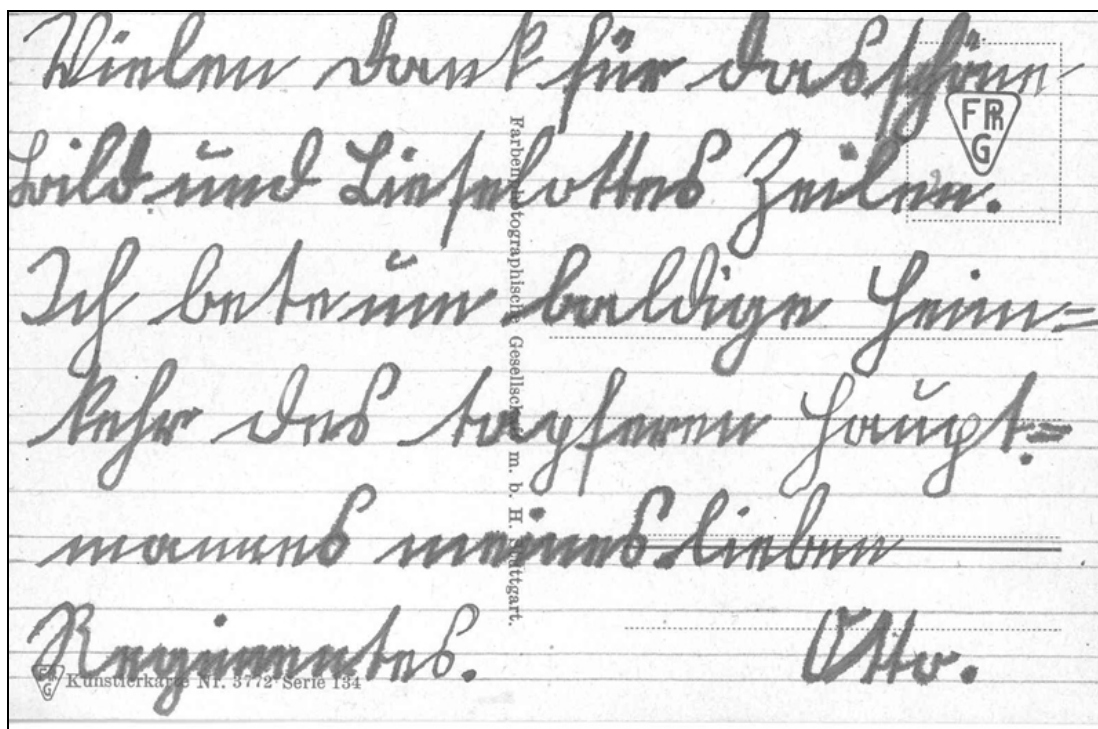 Vielen Dank für das schöne
Bild und Lieselottes Zeilen.
Ich bete um baldige Heim=
kehr des tapferen Haupt=
mannes meines lieben
Regimentes. Otto.
FPRG
Farbenphotographische Gesellschaft m. b. H. Stuttgart.
Künstlerkarte Nr. 3772 Serie 134